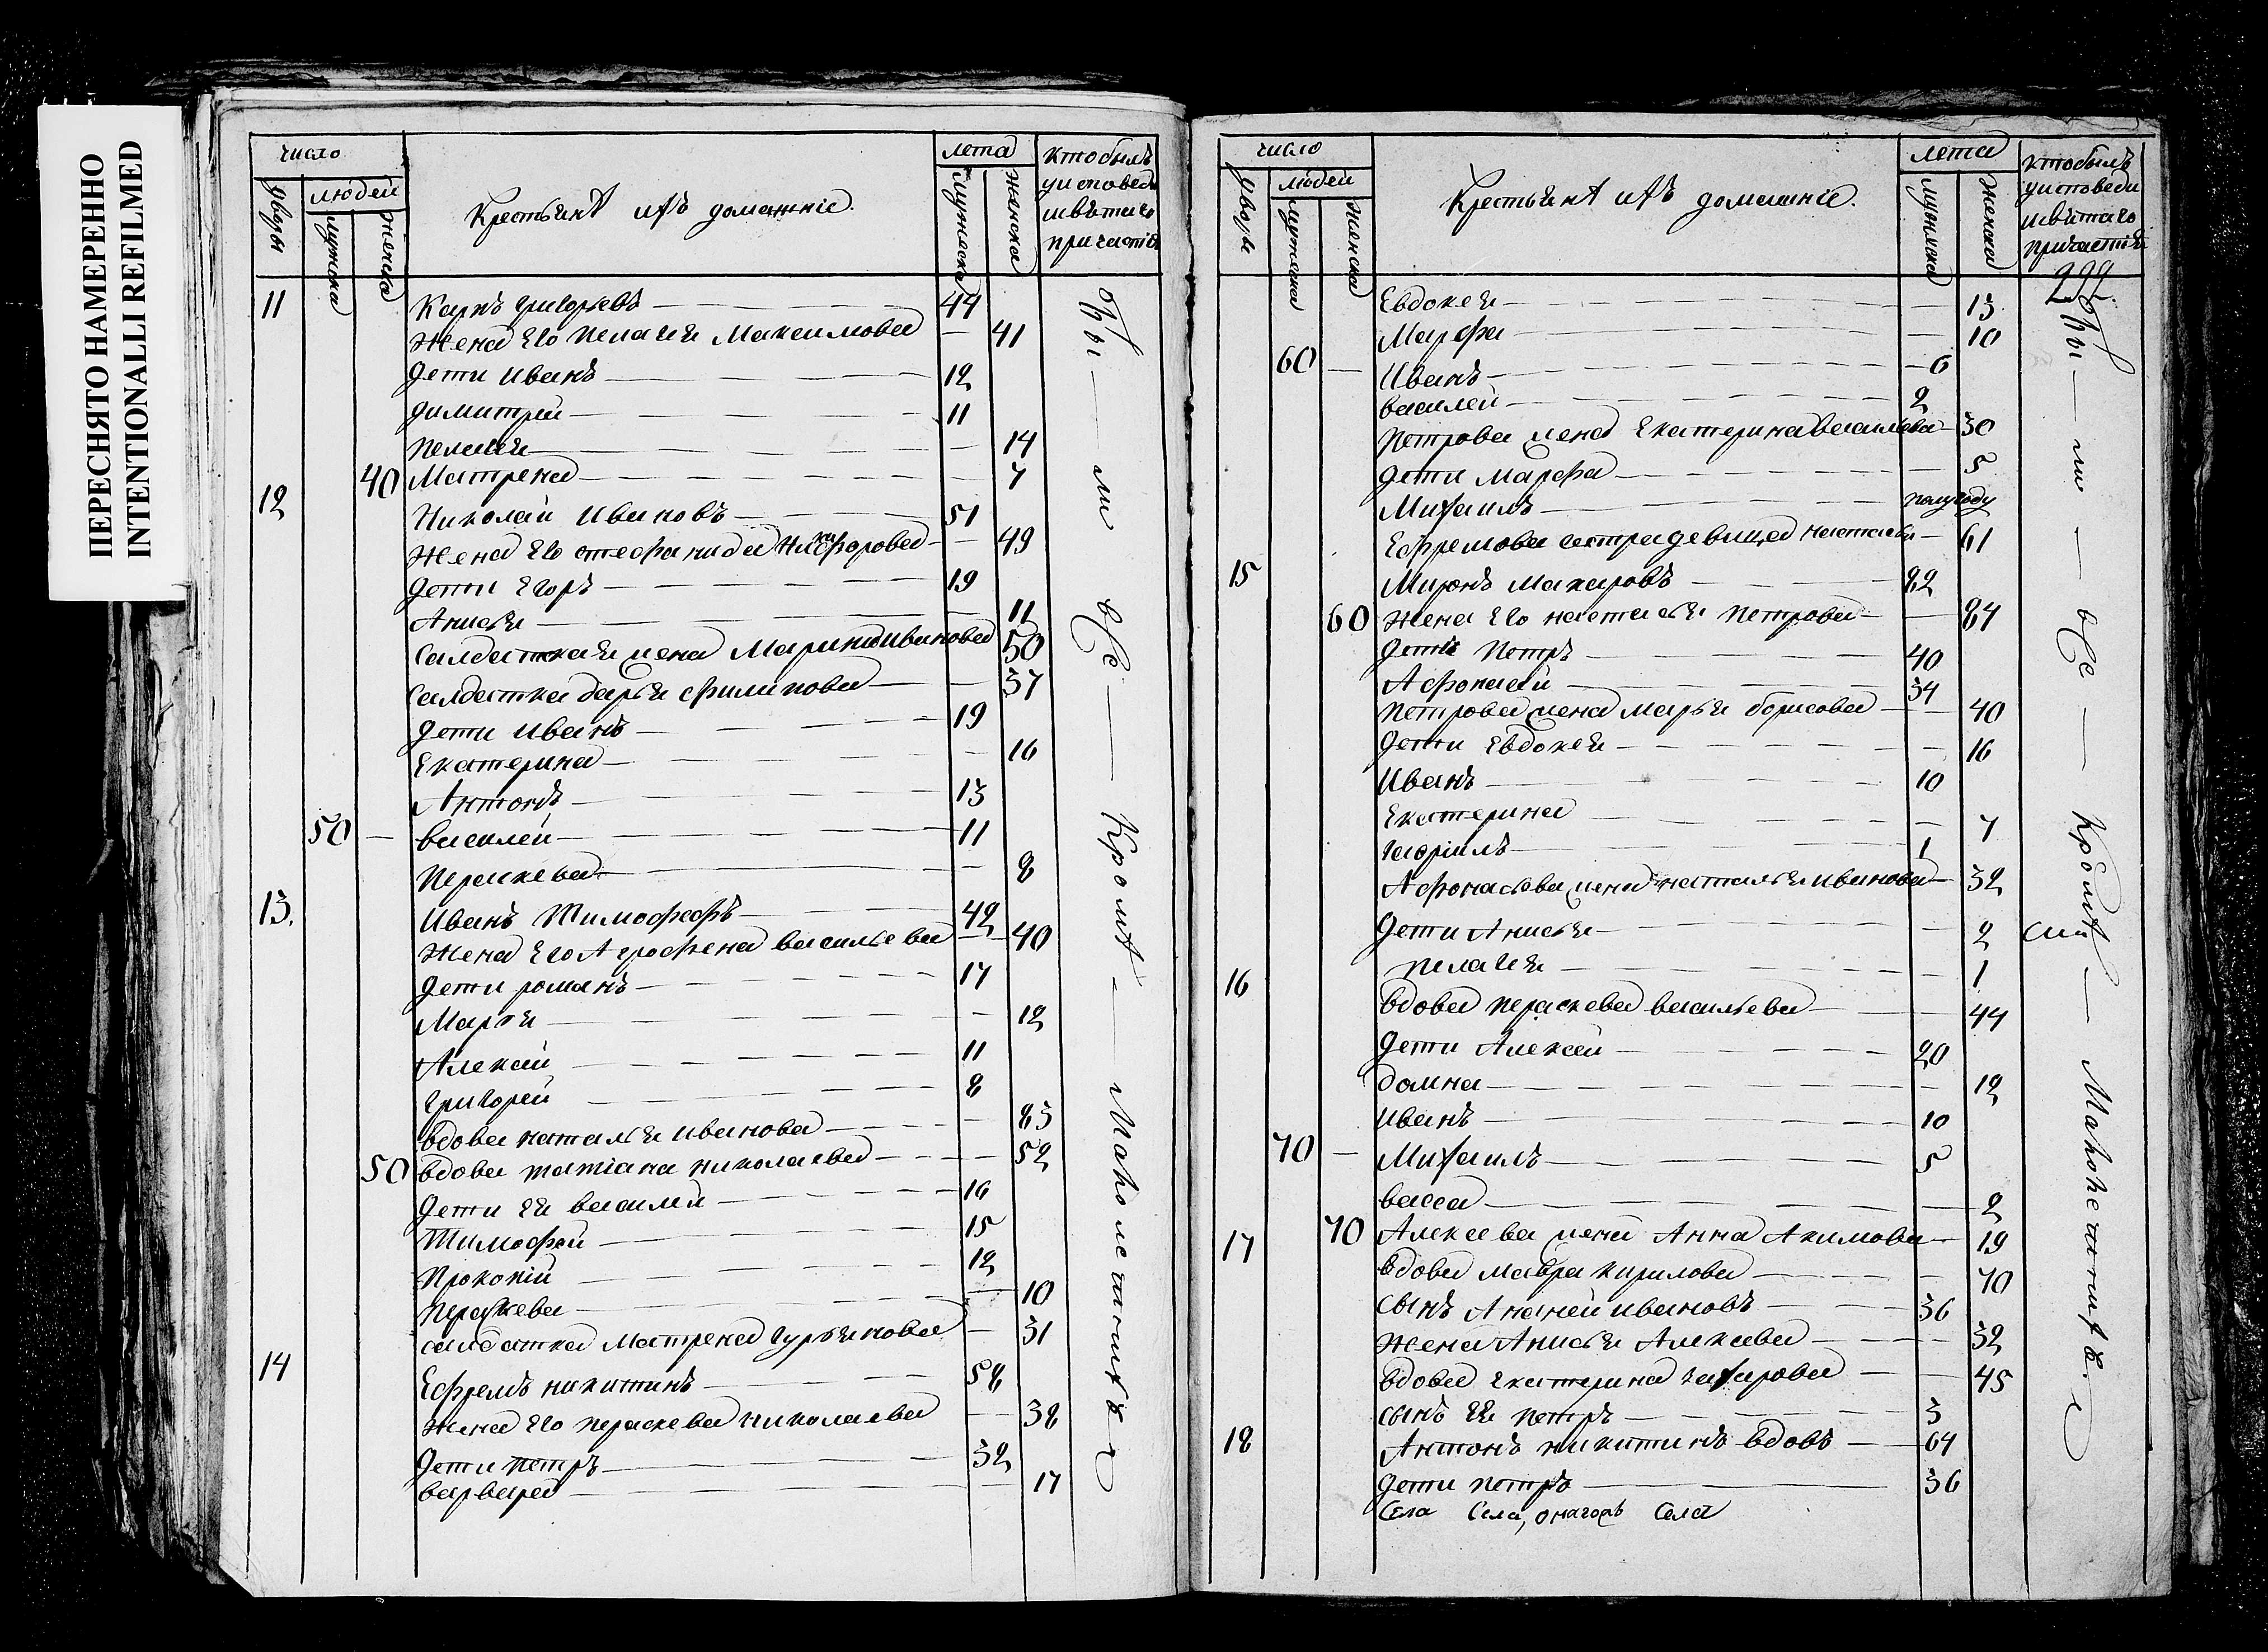 ПЕРЕСНЯТО НАМЕРЕННО
INTENTIONALLI REFILMED
число
людей
дворы
мужска
женска
Крестьянѣ ихъ домашніе.
лета
мужеска
женска
кто былъ
у исповеди
и святаго
причастія
11 Карпъ григорьевъ 44
жена Его пелагея Максимова 41
дети Иванъ 12
димитрей 11
пелагея 14
40 Матрена 7
12 Николай Ивановъ 51
жена Его стефанида Никифорова 49
дети Егоръ 19
Анисья 11
Салдатская жена Марина Иванова 50
салдатка дарья филипова 37
дети Иванъ 19
Екатерина 16
Антонъ 13
50 василей 11
Параскева 8
13. Иванъ Тимофефъ 42
жена Его Агрофена васильева 40
дети романъ 17
Марья 12
Алексей 11
григорей 8
вдова наталья иванова 83
50 вдова татіана николаева 52
дети Ея василей 16
Тимофей 15
Прокопій 12
Параскева 10
салдатка Матрена гурьянова 31
14 Ефремъ никитинъ 58
жена Его параскева николаева 38
дети петръ 32
варвара 17
бы ли все Кромѣ Малолетнихъ
число
людей
дворы
мужеска
женска
Крестьянѣ ихъ домашніе.
лета
мужеска
женска
кто былъ
у исповеди
и святаго
причастія
299
Евдокея 13
Марфа 10
60 Иванъ 6
василей 2
петрова жена Екатерина васильева 30
дети Марфа 5
Михаилъ полугоду
Ефремова сестра девица настасья 61
15 Миронъ Макаровъ 82
60 жена Его настасья Петрова 84
дети Петръ 40
Афонасей 34
петрова жена Марья борисова 40
дети Евдокея 16
Иванъ 10
Екатерина 7
гаврилъ 1
Афонасьева жена наталья иванова 32
дети Анисья 2
пелагея 1
16 вдова параскева васильева 44
дети Алексей 20
домна 12
Иванъ 10
70 Михаилъ 5
васса 2
70 Алексеева жена Анна Акимова 19
17 вдова мавра кирилова 70
сынъ Ананей ивановъ 36
жена Анисья Алексеева 32
вдова Екатерина захарова 45
сынъ Ея Петръ 3
18 Антонъ никитинъ вдовъ 64
дети петръ 36
Села Села, Села
бы ли все Кромѣ Малолетнихъ.